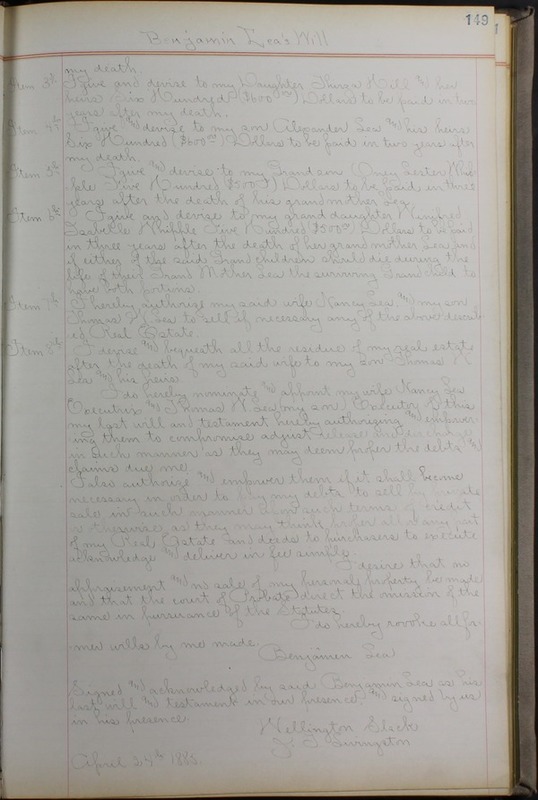 149
Benjamin Lea's Will
my death.
Item 3rd I give and devise to my Daughter Thirza Hill & her
heirs Six Hundred ($600.00) Dollars to be paid in two
years after my death.
Item 4th I give & devise to my son Alexander Lea & his heirs
Six Hundred ($600.00) Dollars to be paid in two years after
my death.
Item 5th I give & devise to my Grandson Lester Whip
ple Five Hundred ($500.00) Dollars to be paid in three
years after the death of his grandmother Lea.
Item 6th I give and devise to my grand daughter
Isabelle Whipple Five Hundred ($500.00) Dollars to be paid
in three years after the death of her grand mother Lea and
if either of the said Grandchildren should die during the
life of their Grand Mother Lea the surviving Grandchild to
have both portions.
Item 7th I hereby authorize my said wife Nancy Lea & my son
Thomas N. Lea to sell if necessary any of the above describ
ed Real Estate.
Item 8th I devise & bequeath all the residue of my real estate
after the death of my said wife to my son Thomas N.
Lea & his heirs.
I do hereby nominate & appoint my wife Nancy Lea
Executrix & Thomas N. Lea (my son) Executor of this
my last will and testament hereby authorizing & empower
ing them to compromise adjust release and discharge
in such manner as they may deem proper the debts &
claims due me.
I also authorize & empower them if it shall become
necessary in order to pay my debts to sell by private
sale in such manner upon such terms of credit
or otherwise as they may think proper all or any part
of my Real Estate and deeds to purchasers to execute
acknowledge & deliver in fee simple.
I desire that no
appraisement & no sale of my personal property be made
and that the court of Probate direct the omission of the
same in pursuance of the Statutes.
I do hereby revoke all for
mer wills by me made.
Benjamin Lea
Signed & acknowledged by said Benjamin Lea as his
last will & testament in our presence & signed by us
in his presence
Wellington Slack
Livingston
April 24th 1885.